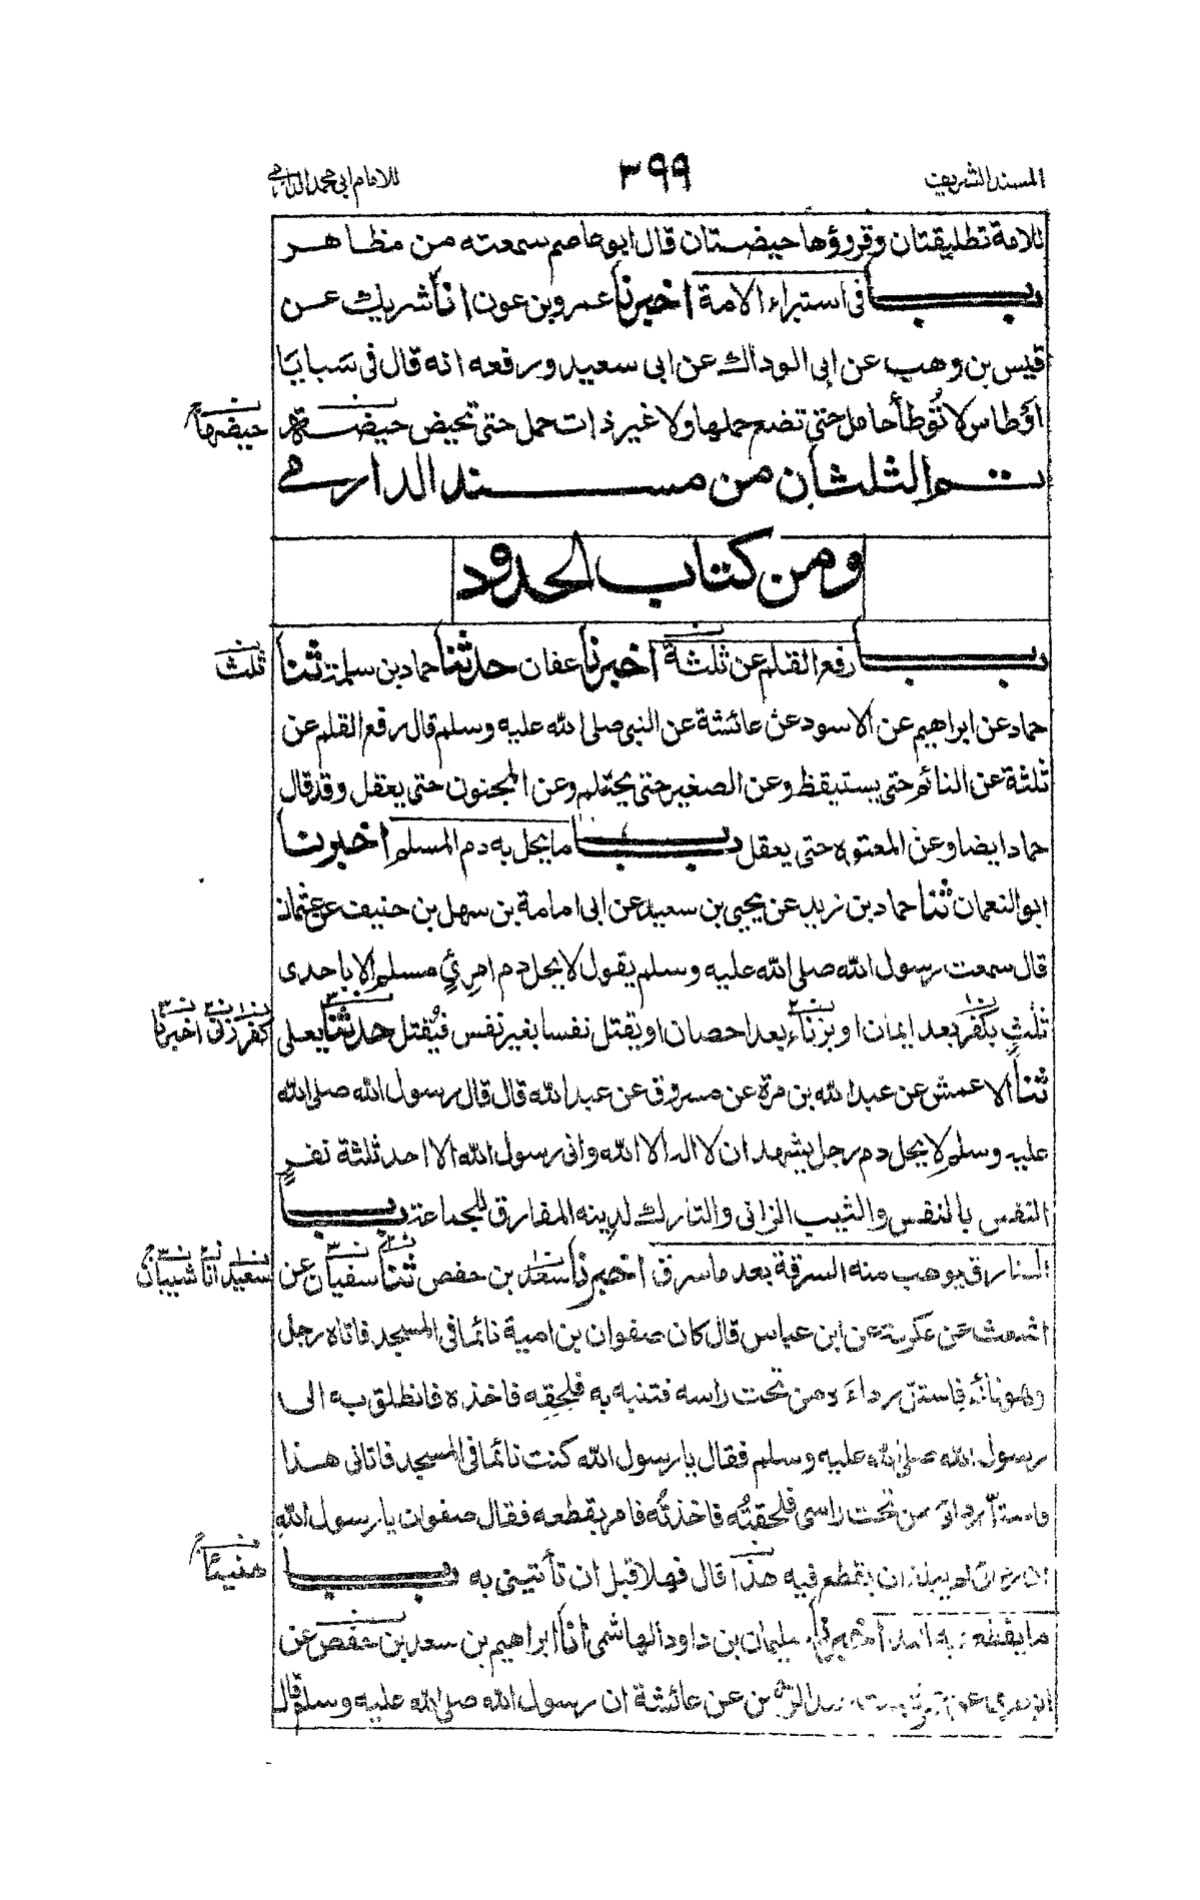 المسند الشريف ٣٩٩ للامام ابى محمد الدارمى
للامة تطليقتان وقروؤها حيضتان قال ابو عاصم سمعته من مظاهر
باب فى استبراء الامة اخبرنا عمرو بن عون انا شريك عن
قيس بن وهب عن ابى الوداك عن ابى سعيد ورفعه انه قال فى سبايا
اوطاس لا تُوطأ حامل حتى تضع حملها ولا غير ذات حمل حتى تحيض حيضة
حيضتها
تم الثلثان من مسند الدارمى
ومن كتاب الحدود
باب رفع القلم عن ثلثة اخبرنا عفان حدثنا حماد بن سلمة ثنا
ثلث
حماد عن ابراهيم عن الاسود عن عائشة عن النبى صلى الله عليه وسلم قال رفع القلم عن
ثلثة عن النائم حتى يستيقظ وعن الصغير حتى يحتلم وعن المجنون حتى يعقل وقد قال
حماد ايضا وعن المعتوه حتى يعقل باب ما يحل به دم المسلم اخبرنا
ابو النعمان ثنا حماد بن زيد عن يحيى بن سعيد عن ابى امامة بن سهل بن حنيف عن عثمان
قال سمعت رسول الله صلى الله عليه وسلم يقول لا يحل دم امرئٍ مسلم الا باحدى
ثلثٍ بكفر بعد ايمان او بزناء بعد احصان او يقتل نفسا بغير نفس فيُقتل حدثنا يعلى
كفر زنى اخبرنا
ثنا الاعمش عن عبد الله بن مرة عن مسروق عن عبد الله قال قال رسول الله صلى الله
عليه وسلم لا يحل دم رجل يشهد ان لا اله الا الله وانى رسول الله الا احد ثلثة نفرٍ
النفس بالنفس والثيب الزانى والتارك لدينه المفارق للجماعة باب
السارق يوهب منه السرقة بعد ما سرق اخبرنا سعد بن حفص ثنا سفيان عن
سعيد انا شيبان
اشعث عن عكرمة عن ابن عباس قال كان صفوان بن امية نائما فى المسجد فاتاه رجل
وهو نائم فاستل رداءَه من تحت راسه فتنبه به فلحِقه فاخذه فانطلق به الى
رسول الله صلى الله عليه وسلم فقال يا رسول الله كنت نائما فى المسجد فاتانى هذا
فاستلّ ردائى من تحت راسى فلحقتُه فاخذتُه فامر بقطعه فقال صفوان يا رسول الله
ان ردائى لم يبلغ ان يقطع فيه هذا قال فهلا قبل ان تأتينى به باب
ما يقطع فيه اليد اخبرنا سليمان بن داود الهاشمى انا ابراهيم بن سعد بن حفص عن
الزهرى عن عمرة بنت عبد الرحمن عن عائشة ان رسول الله صلى الله عليه وسلم قال